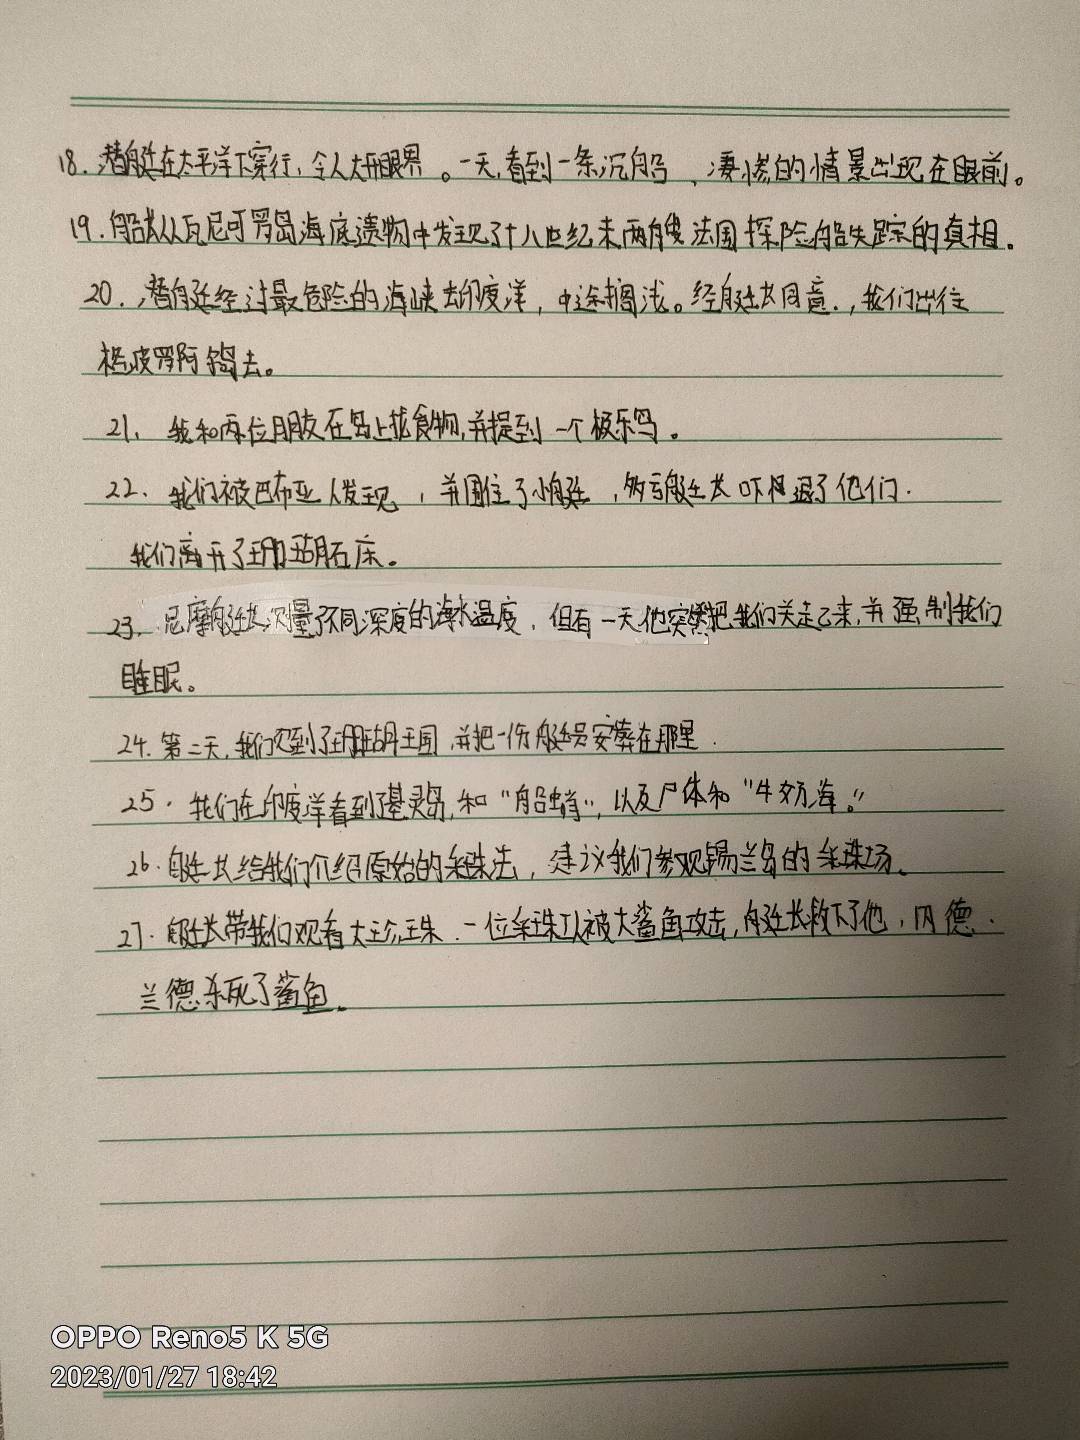 18.潜艇在太平洋下穿行,令人大开眼界。一天,看到一条沉船,凄惨的情景出现在眼前。
19.船长从瓦尼可罗岛海底遗物中发现了十八世纪末两艘法国探险船失踪的真相.
20.潜艇经过最危险的海峡去印度洋,中途搁浅。经艇长同意.,我们出往
格波罗阿岛去。
21、我和两位朋友在岛上找食物,并捉到一个极乐鸟。
22、我们被巴布亚人发现,并围住了小艇,多亏艇长吓退了他们.
我们离开了珊瑚石床。
23、尼摩艇长测量了不同深度的海水温度,但有一天他突然把我们关起来,并强制我们
睡眠。
24.第二天,我们见到了珊瑚王国,并把一伤艇员安葬在那里.
25.我们在印度洋看到了基灵岛,和"船蛸",以及尸体和"牛奶海。"
26.艇长给我们介绍原始的采珠法,建议我们参观锡兰岛的采珠场。
27.艇长带我们观看大珍珠.一位采珠人被大鲨鱼攻击,艇长救下了他,内德.
兰德杀死了鲨鱼。
OPPO Reno5 K 5G
2023/01/27 18:42